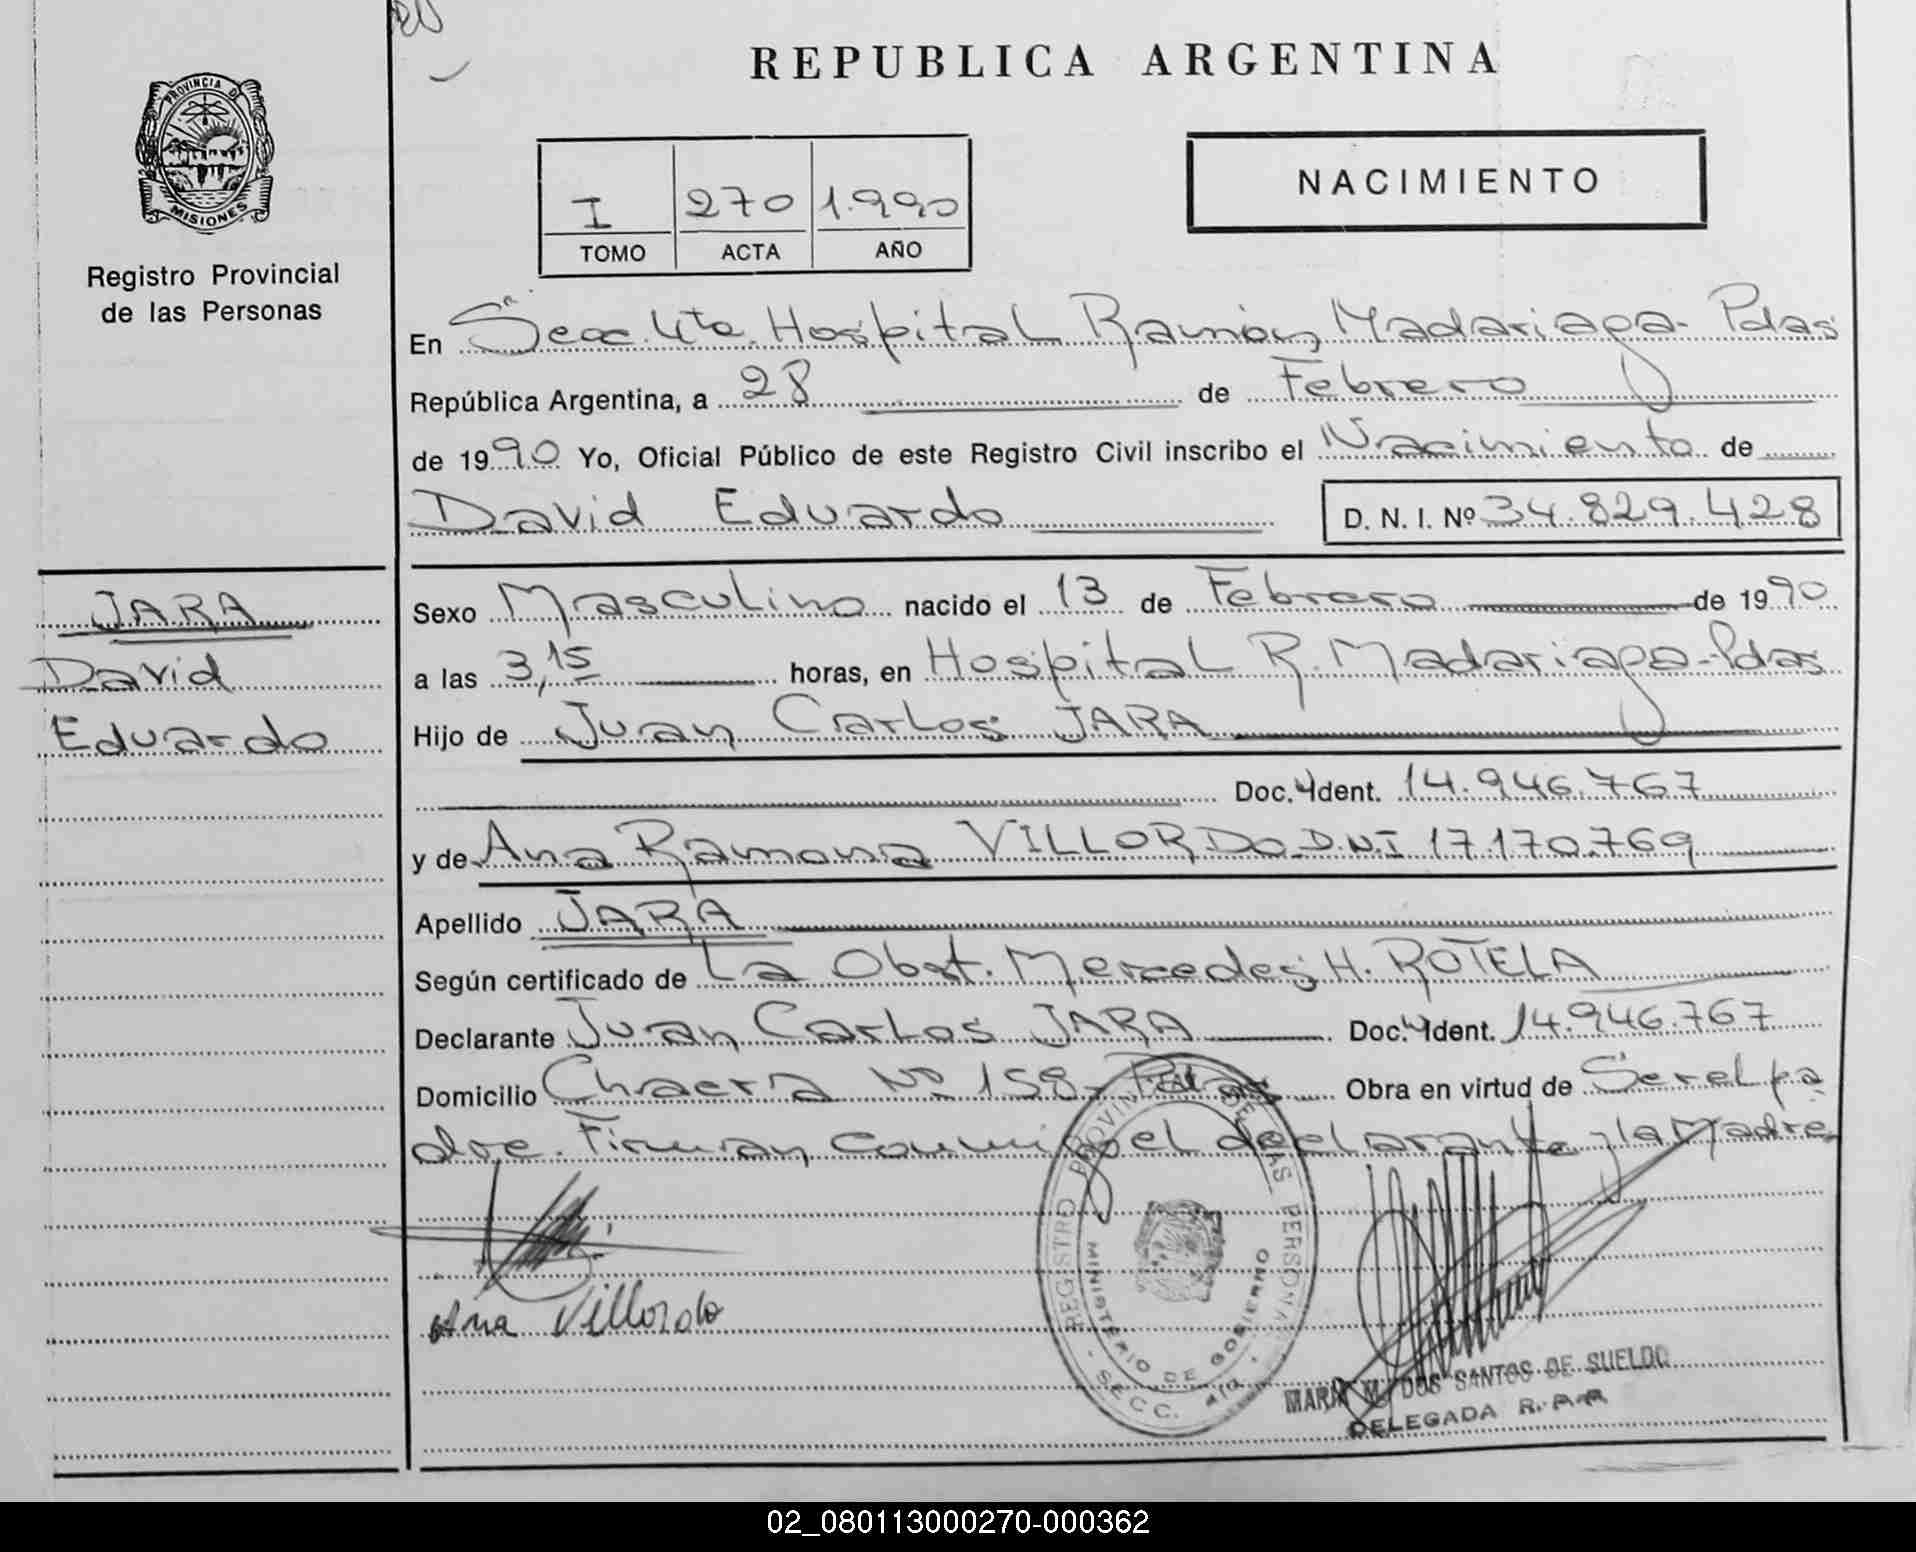 REPUBLICA ARGENTINA
PROVINCIA DE
MISIONES
Registro Provincial
de las Personas
I 270 1.990
TOMO ACTA AÑO
NACIMIENTO
En Secc. 4ta. Hospital Ramón Madariaga - Pdas
República Argentina, a 28 de Febrero
de 1990 Yo, Oficial Público de este Registro Civil inscribo el Nacimiento de
David Eduardo D. N. I. Nº 34.829.428
JARA
David
Eduardo
Sexo Masculino nacido el 13 de Febrero de 1990
a las 3,15 horas, en Hospital R. Madariaga - Pdas
Hijo de Juan Carlos JARA
Doc. Ident. 14.946.767
y de Ana Ramona VILLORDO D.N.I 17.170.769
Apellido JARA
Según certificado de La Obst. Mercedes H. ROTELA
Declarante Juan Carlos JARA Doc. Ident. 14.946.767
Domicilio Chacra Nº 158 - Pdas Obra en virtud de Ser el pa
dre. Firman conmigo el declarante y la Madre
Ana Villordo
REGISTRO PROVINCIAL DE LAS PERSONAS
MINISTERIO DE GOBIERNO
- SECC. 4ta -
MARIA M. DOS SANTOS DE SUELDO
DELEGADA R.P.P.
02_080113000270-000362